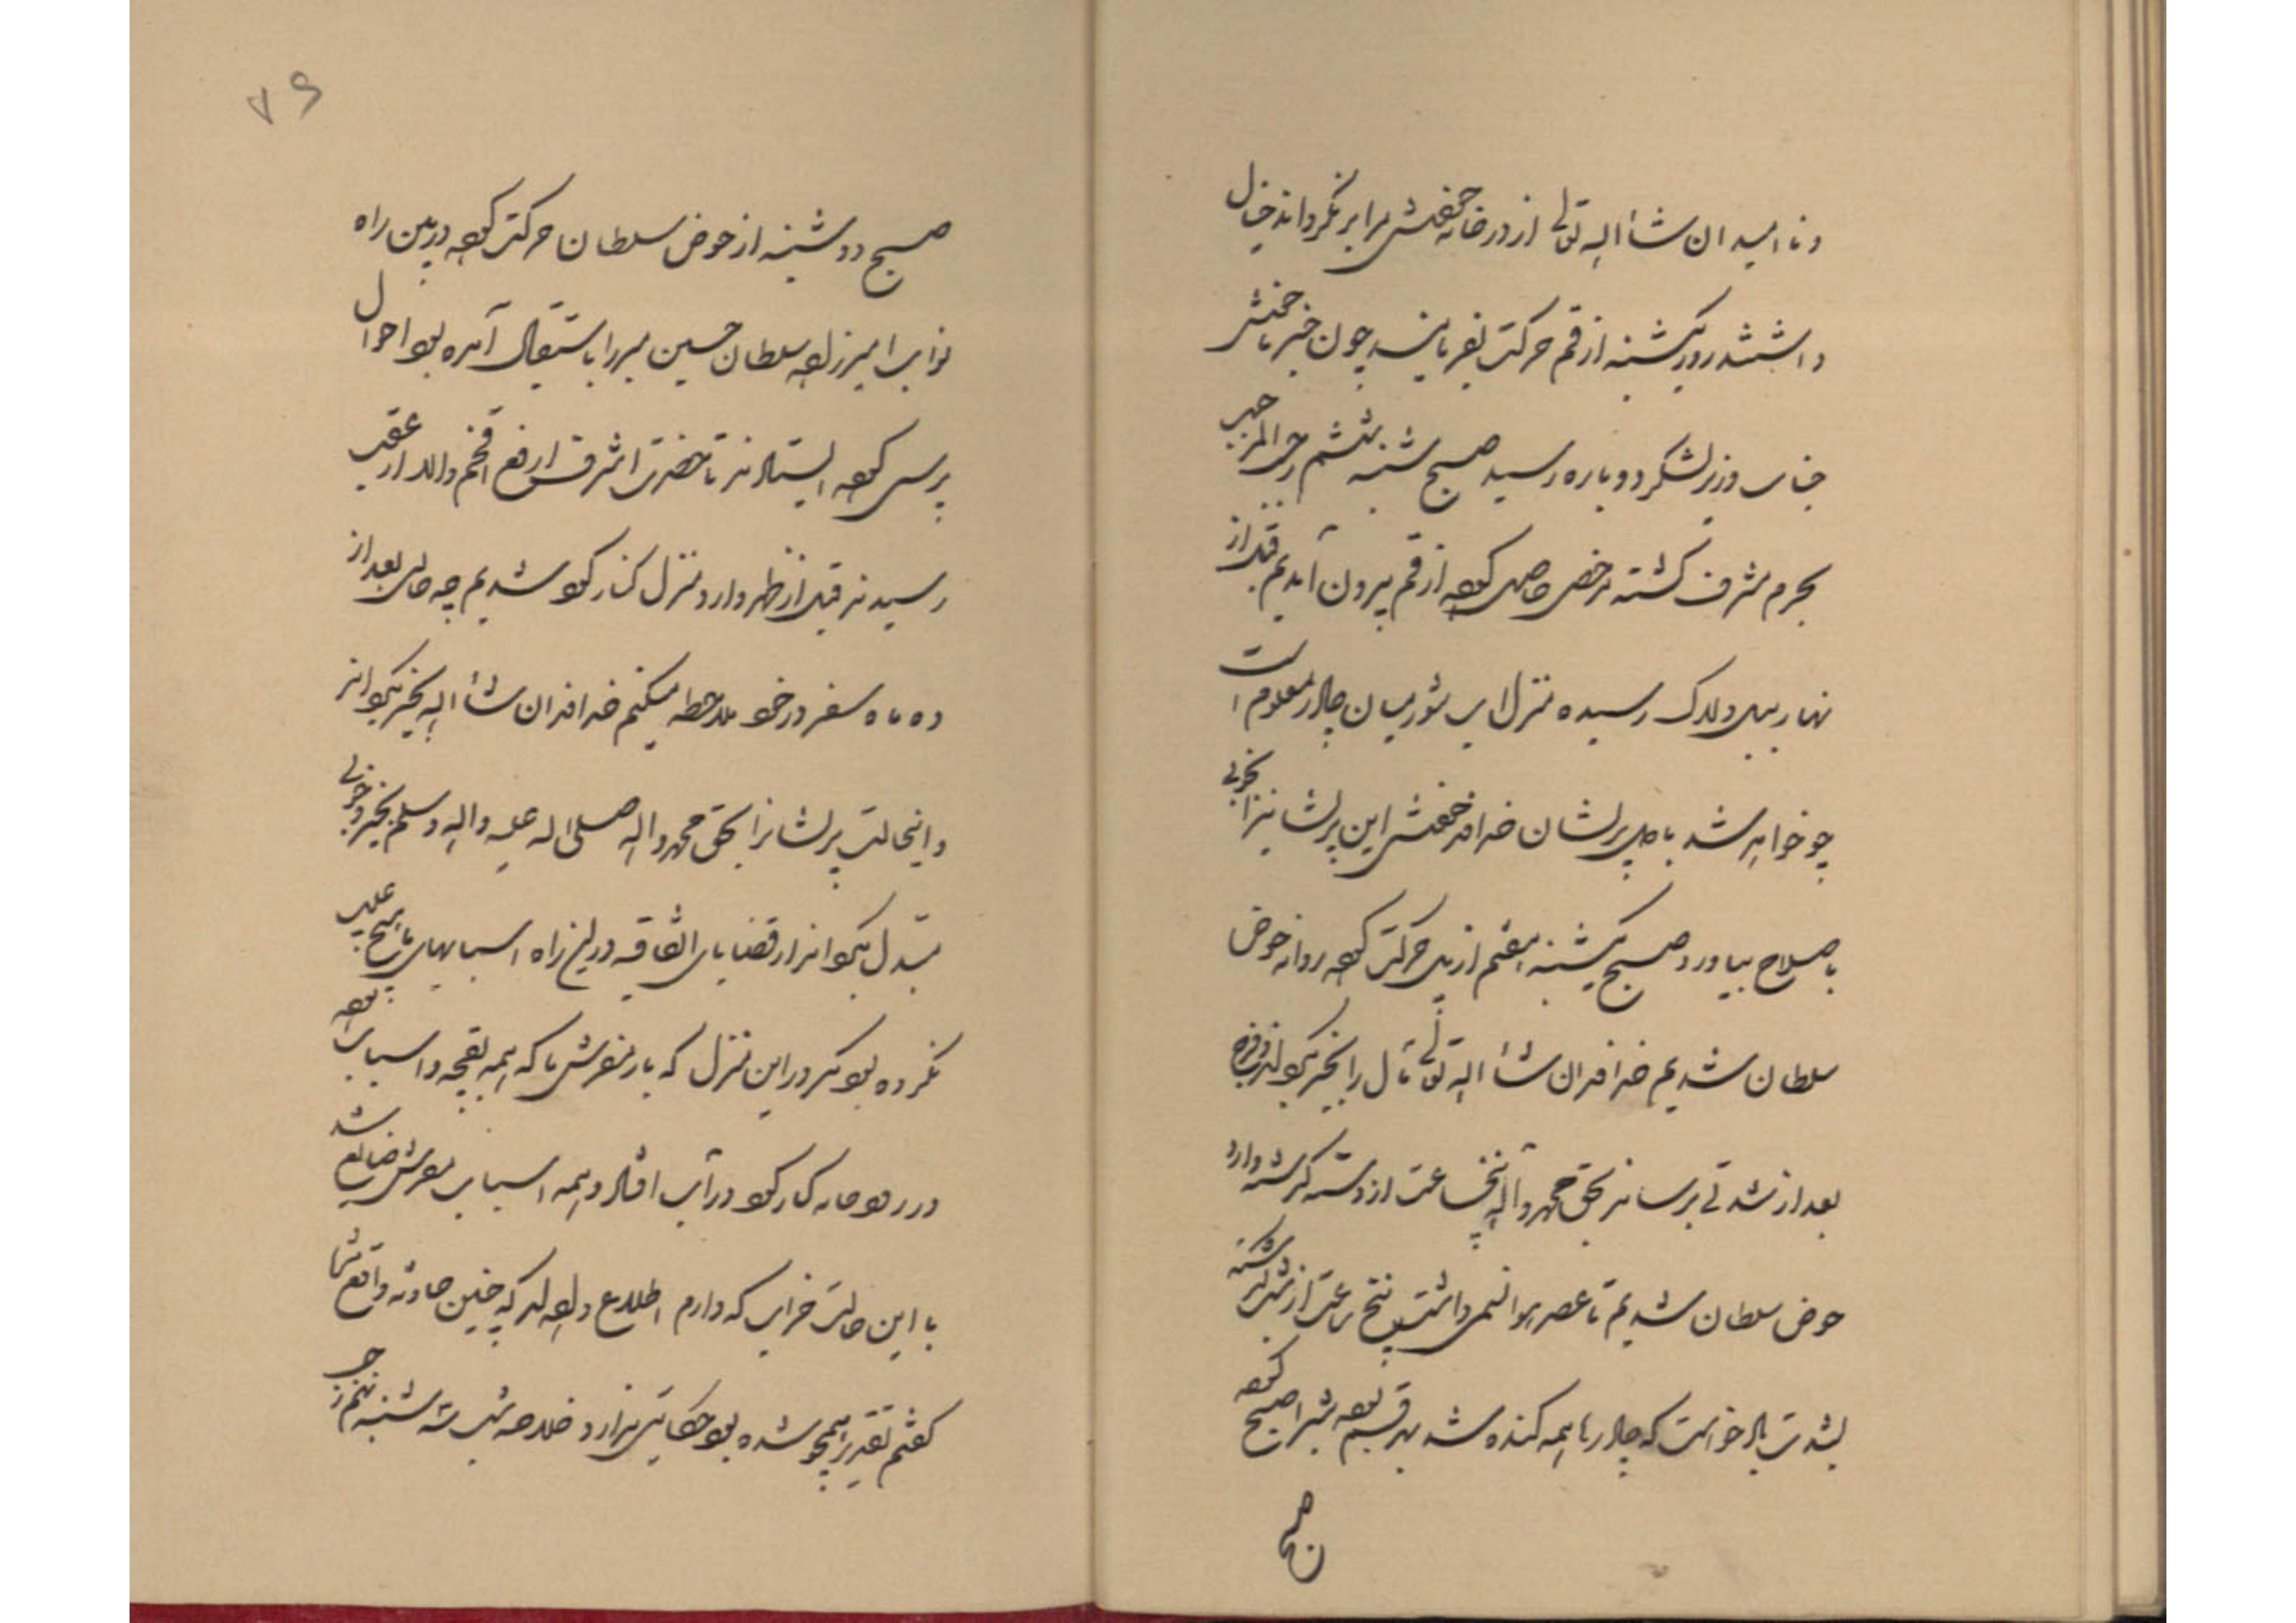 و ناامید ان شاء الله تعالی از در خانه خودش مرا بر نگرداند خیال
داشتند روز یکشنبه از قم حرکت بفرمایند چون خبر ناخوشی
جناب وزیر لشکر دوباره رسید صبح شنبه ششم رجب المرجب
بحرم مشرف گشته مرخصی حاصل کرده از قم بیرون آمدیم قبل از
نهار بپل دلاک رسیده منزل آب شور میان چادر معلوم است
چو خواهد شد با حال پریشان خداوند خودش این پریشانیرا بخوبی
باصلاح بیاورد صبح یکشنبه هفتم از پل حرکت کرده روانه حوض
سلطان شدیم خداوند ان شاء الله تعالی مآل را بخیر بگرداند و فرج
بعد از شدتی برساند بحق محمد و آله پنجساعت از دسته گذشته وارد
حوض سلطان شدیم تا عصر هوا نسیمی داشت پنج ساعت از شب گذشته
بشدت باد خواست که چادرها همه کنده شد بهر قسم بود شبرا صبح کرده
صبح
۷۶
صبح دوشنبه از حوض سلطان حرکت کرده در بین راه
نواب امیرزاده سلطان حسین میرزا باستقبال آمده بود احوال
پرسی کرده ایستادند تا حضرت اشرف ارفع افخم والد از عقب
رسیدند قبل از ظهر وارد منزل کنارگرد شدیم چه حالی بعد از
ده ماه سفر در خود ملاحظه میکنم خداوند ان شاء الله بخیر بگرداند
و اینحالت پریشانرا بحق محمد و آله صلی الله علیه و آله و سلم بخیر و خوبی
مبدل بگرداند از قضایای اتفاقیه در این راه اسبابهای ما هیچ عیب
نکرده بود مگر در این منزل که بار مفرش ما که همه بقچه و اسباب بوده
در رودخانه کنارگرد در آب افتاد و همه اسباب مفرش ضایع شد
با این حالت خرابی که دارم اطلاع دادند که چنین حادثه واقع شد
گفتم تقدیر همچو شده بود حکایتی ندارد خلاصه شب سه شنبه نهم رجب